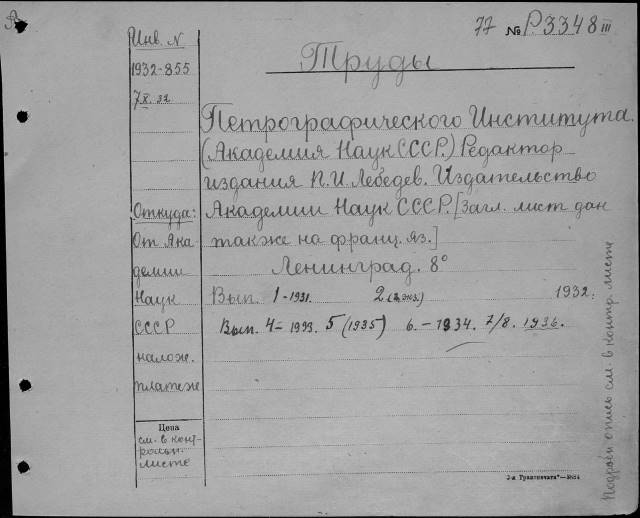 77 № P.3348 III
Труды
Инв. N
1932-855
7 X. 32
Петрографического Института.
(Академия Наук СССР.) Редактор
издания П.И. Лебедев. Издательство
Академии Наук СССР. [Загл. лист дан
также на франц. яз.]
Ленинград. 8°
Откуда:
От Ака-
демии
Наук
СССР
налож.
платеж
Вып. 1-1931. 2 (2 экз.) 1932.
Вып. 4-1933. 5 (1935) 6.-1934. 7/8. 1936.
Цена
см. в конт-
рольн.
листе
Подробн опись см. в контр. листе
3-я Транспечать